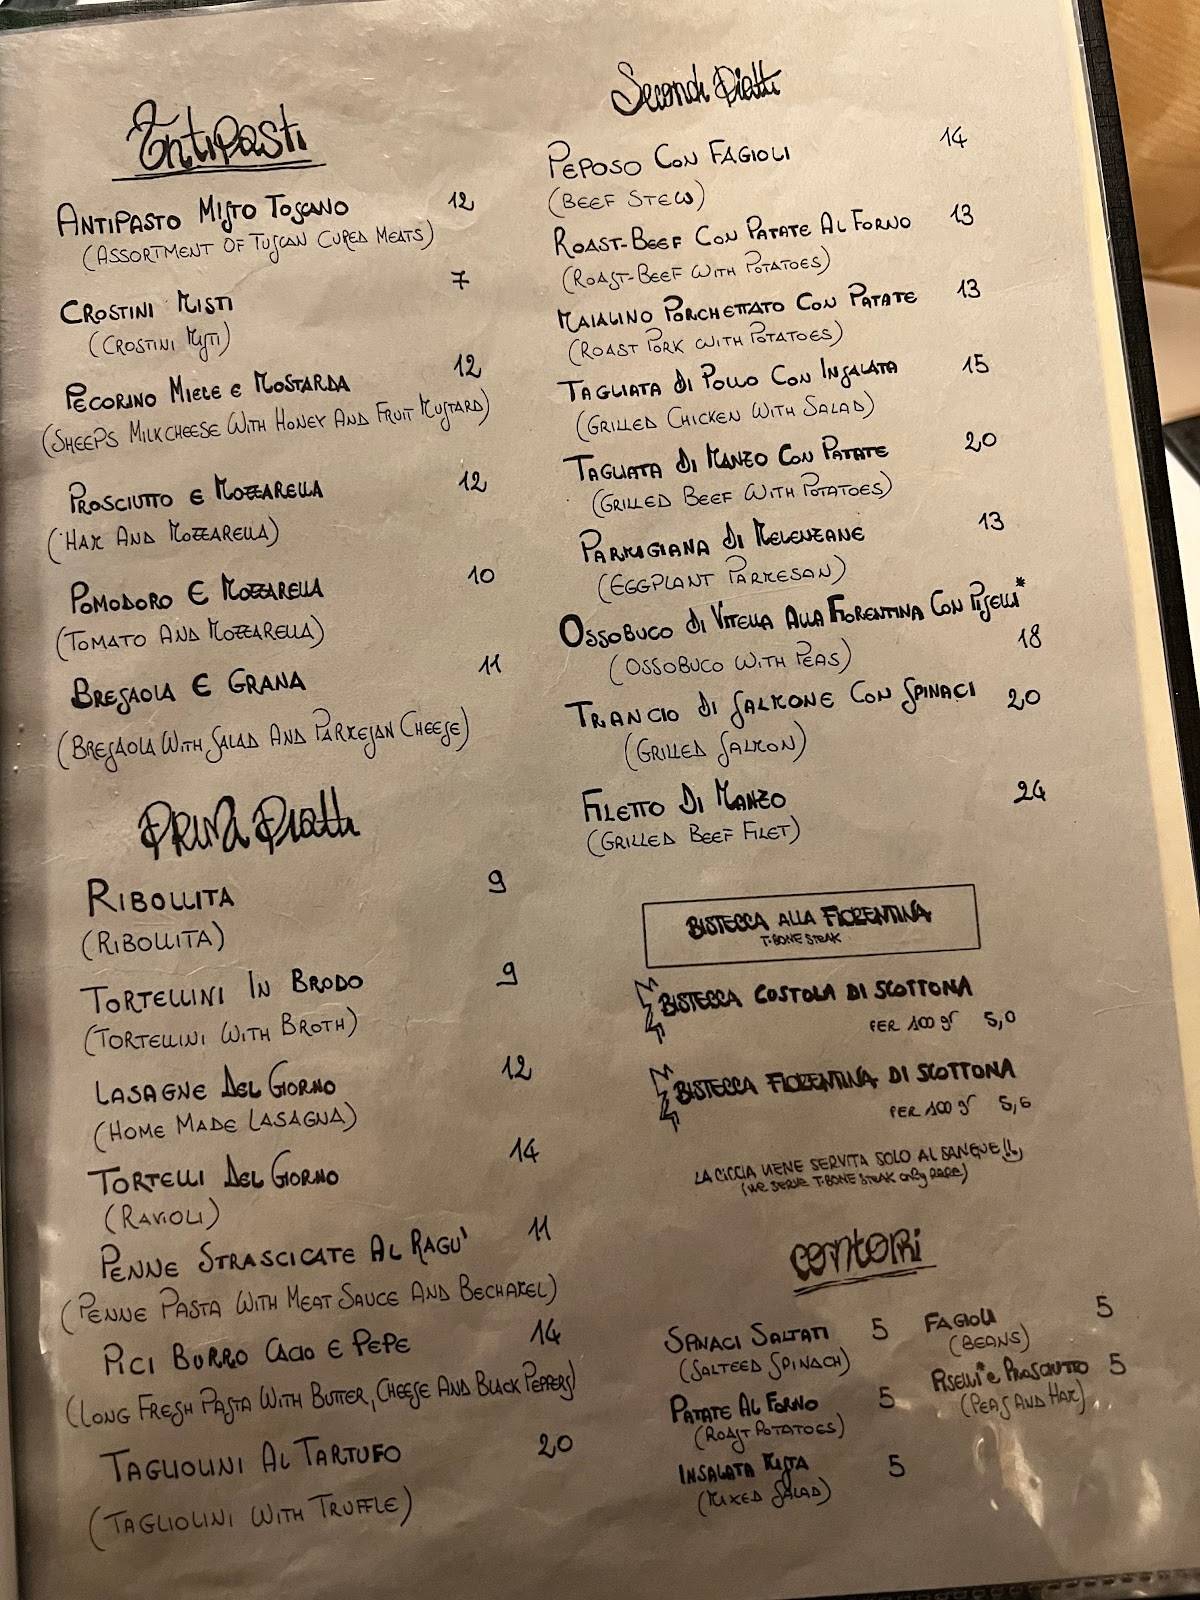 Antipasti
Antipasto Misto Toscano 12
(Assortment of Tuscan Cured Meats)
Crostini Misti 7
(Crostini Misti)
Pecorino Miele e Mostarda 12
(Sheeps Milk cheese With Honey And Fruit Mustard)
Prosciutto e Mozzarella 12
(Ham And Mozzarella)
Pomodoro E Mozzarella 10
(Tomato And Mozzarella)
Bresaola E Grana 11
(Bresaola With Salad And Parmesan Cheese)
Primi Piatti
Ribollita 9
(Ribollita)
Tortellini In Brodo 9
(Tortellini With Broth)
Lasagne Del Giorno 12
(Home Made Lasagna)
Tortelli Del Giorno 14
(Ravioli)
Penne Strascicate Al Ragu' 11
(Penne Pasta With Meat Sauce And Bechamel)
Pici Burro Cacio e Pepe 14
(Long Fresh Pasta With Butter, Cheese And Black Peppers)
Tagliolini Al Tartufo 20
(Tagliolini With Truffle)
Secondi Piatti
Peposo Con Fagioli 14
(Beef Stew)
Roast-Beef Con Patate Al Forno 13
(Roast-Beef With Potatoes)
Maialino Porchettato Con Patate 13
(Roast Pork With Potatoes)
Tagliata di Pollo Con Insalata 15
(Grilled Chicken With Salad)
Tagliata di Manzo Con Patate 20
(Grilled Beef With Potatoes)
Parmigiana di Melenzane 13
(Eggplant Parmesan)
Ossobuco di Vitella Alla Fiorentina Con Piselli*
18
(Ossobuco With Peas)
Trancio di Salmone Con Spinaci 20
(Grilled Salmon)
Filetto Di Manzo 24
(Grilled Beef Filet)
BISTECCA ALLA FIORENTINA
T-BONE STEAK
BISTECCA COSTOLA DI SCOTTONA
PER 100 gr 5,0
BISTECCA FIORENTINA DI SCOTTONA
PER 100 gr 5,5
LA CICCIA VIENE SERVITA SOLO AL SANGUE!!
(WE SERVE T-BONE STEAK only RARE)
Contorni
Spinaci Saltati 5
(Salteed Spinach)
Patate Al Forno 5
(Roast Potatoes)
Insalata Mista 5
(Mixed Salad)
Fagioli 5
(Beans)
Piselli* e Prosciutto 5
(Peas And Ham)